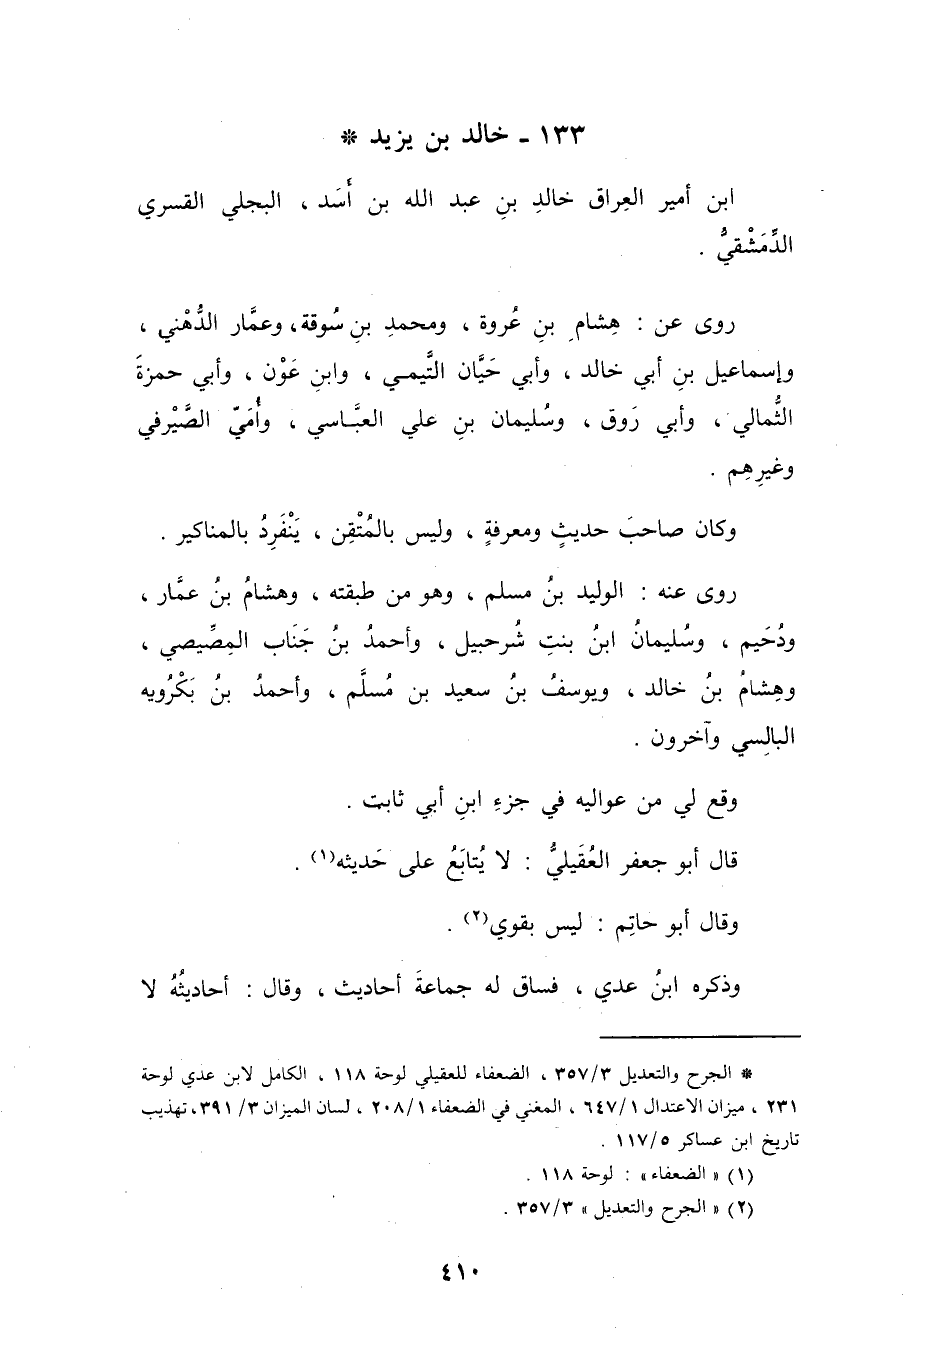 ١٣٣ - خالد بن يزيد *
ابن أمير العِراق خالدِ بنِ عبد الله بن أَسَد ، البجلي القسري
الدِّمَشْقيُّ .
روى عن : هِشام بنِ عُروة ، ومحمدِ بنِ سُوقة، وعمَّار الدُّهْني ،
وإسماعيل بنِ أبي خالد ، وأبي حَيَّان التَّيمي ، وابنِ عَوْن ، وأبي حمزةَ
الثُّمالي ، وأبي رَوق ، وسُليمان بنِ علي العبَّاسي ، وأُمَيّ الصَّيْرفي
وغيرِهِم .
وكان صاحبَ حديثٍ ومعرفةٍ ، وليس بالمُتْقِن ، يَنْفَرِدُ بالمناكير .
روى عنه : الوليد بنُ مسلم ، وهو من طبقته ، وهشامُ بنُ عمَّار ،
ودُحَيم ، وسُليمانُ ابنُ بنتِ شُرحبيل ، وأحمدُ بنُ جَنَاب المِصِّيصي ،
وهِشامُ بنُ خالد ، ويوسفُ بنُ سعيد بن مُسلَّم ، وأحمدُ بنُ بَكْرُويه
البالِسي وآخرون .
وقع لي من عواليه في جزءِ ابنِ أبي ثابت .
قال أبو جعفر العُقَيليُّ : لا يُتابَعُ على حَديثه(١) .
وقال أبو حاتِم : ليس بقوي(٢) .
وذكره ابنُ عدي ، فساق له جماعةَ أحاديث ، وقال : أحاديثُهُ لا
* الجرح والتعديل ٣٥٧/٣ ، الضعفاء للعقيلي لوحة ١١٨ ، الكامل لابن عدي لوحة
٢٣١ ، ميزان الاعتدال ٦٤٧/١ ، المغني في الضعفاء ٢٠٨/١ ، لسان الميزان ٣٩١/٣، تهذيب
تاريخ ابن عساكر ١١٧/٥ .
(١) « الضعفاء» : لوحة ١١٨ .
(٢) « الجرح والتعديل » ٣٥٧/٣ .
٤١٠